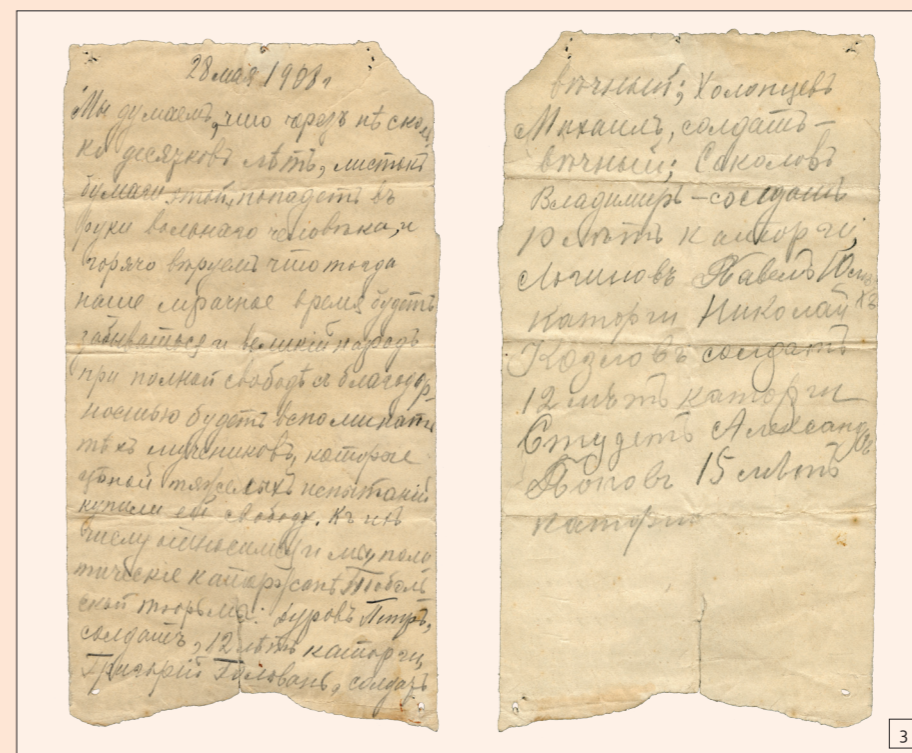 28 мая 1908 г
Мы думаемъ, что черезъ нѣсколь
ко десятковъ лѣтъ, листокъ
бумаги этой, попадетъ въ
руки вольнаго человѣка, и
горячо вѣруемъ что тогда
наше мрачное время будетъ
забываться и великій народъ
при полной свободѣ съ благодар-
ностью будетъ вспоминать
тѣхъ мучениковъ, которые
цѣной тяжелыхъ испытаній
купили ему свободу. Къ ихъ
числу относимся и мы, поли
тическіе каторжане Тоболь
ской тюрьмы: Буровъ Петръ,
солдатъ, 12 лѣтъ каторги,
Григорій Головань, солдатъ
вѣчный; Холопцевъ
Михаилъ, солдатъ-
вѣчный; Соколовъ
Владимиръ - солдатъ
10 лѣтъ каторги,
Логиновъ Павелъ 10 лѣтъ
каторги Николай
Козловъ солдатъ
12 лѣтъ каторги
Студетъ Александръ
Поповъ 15 лѣтъ
каторги
3